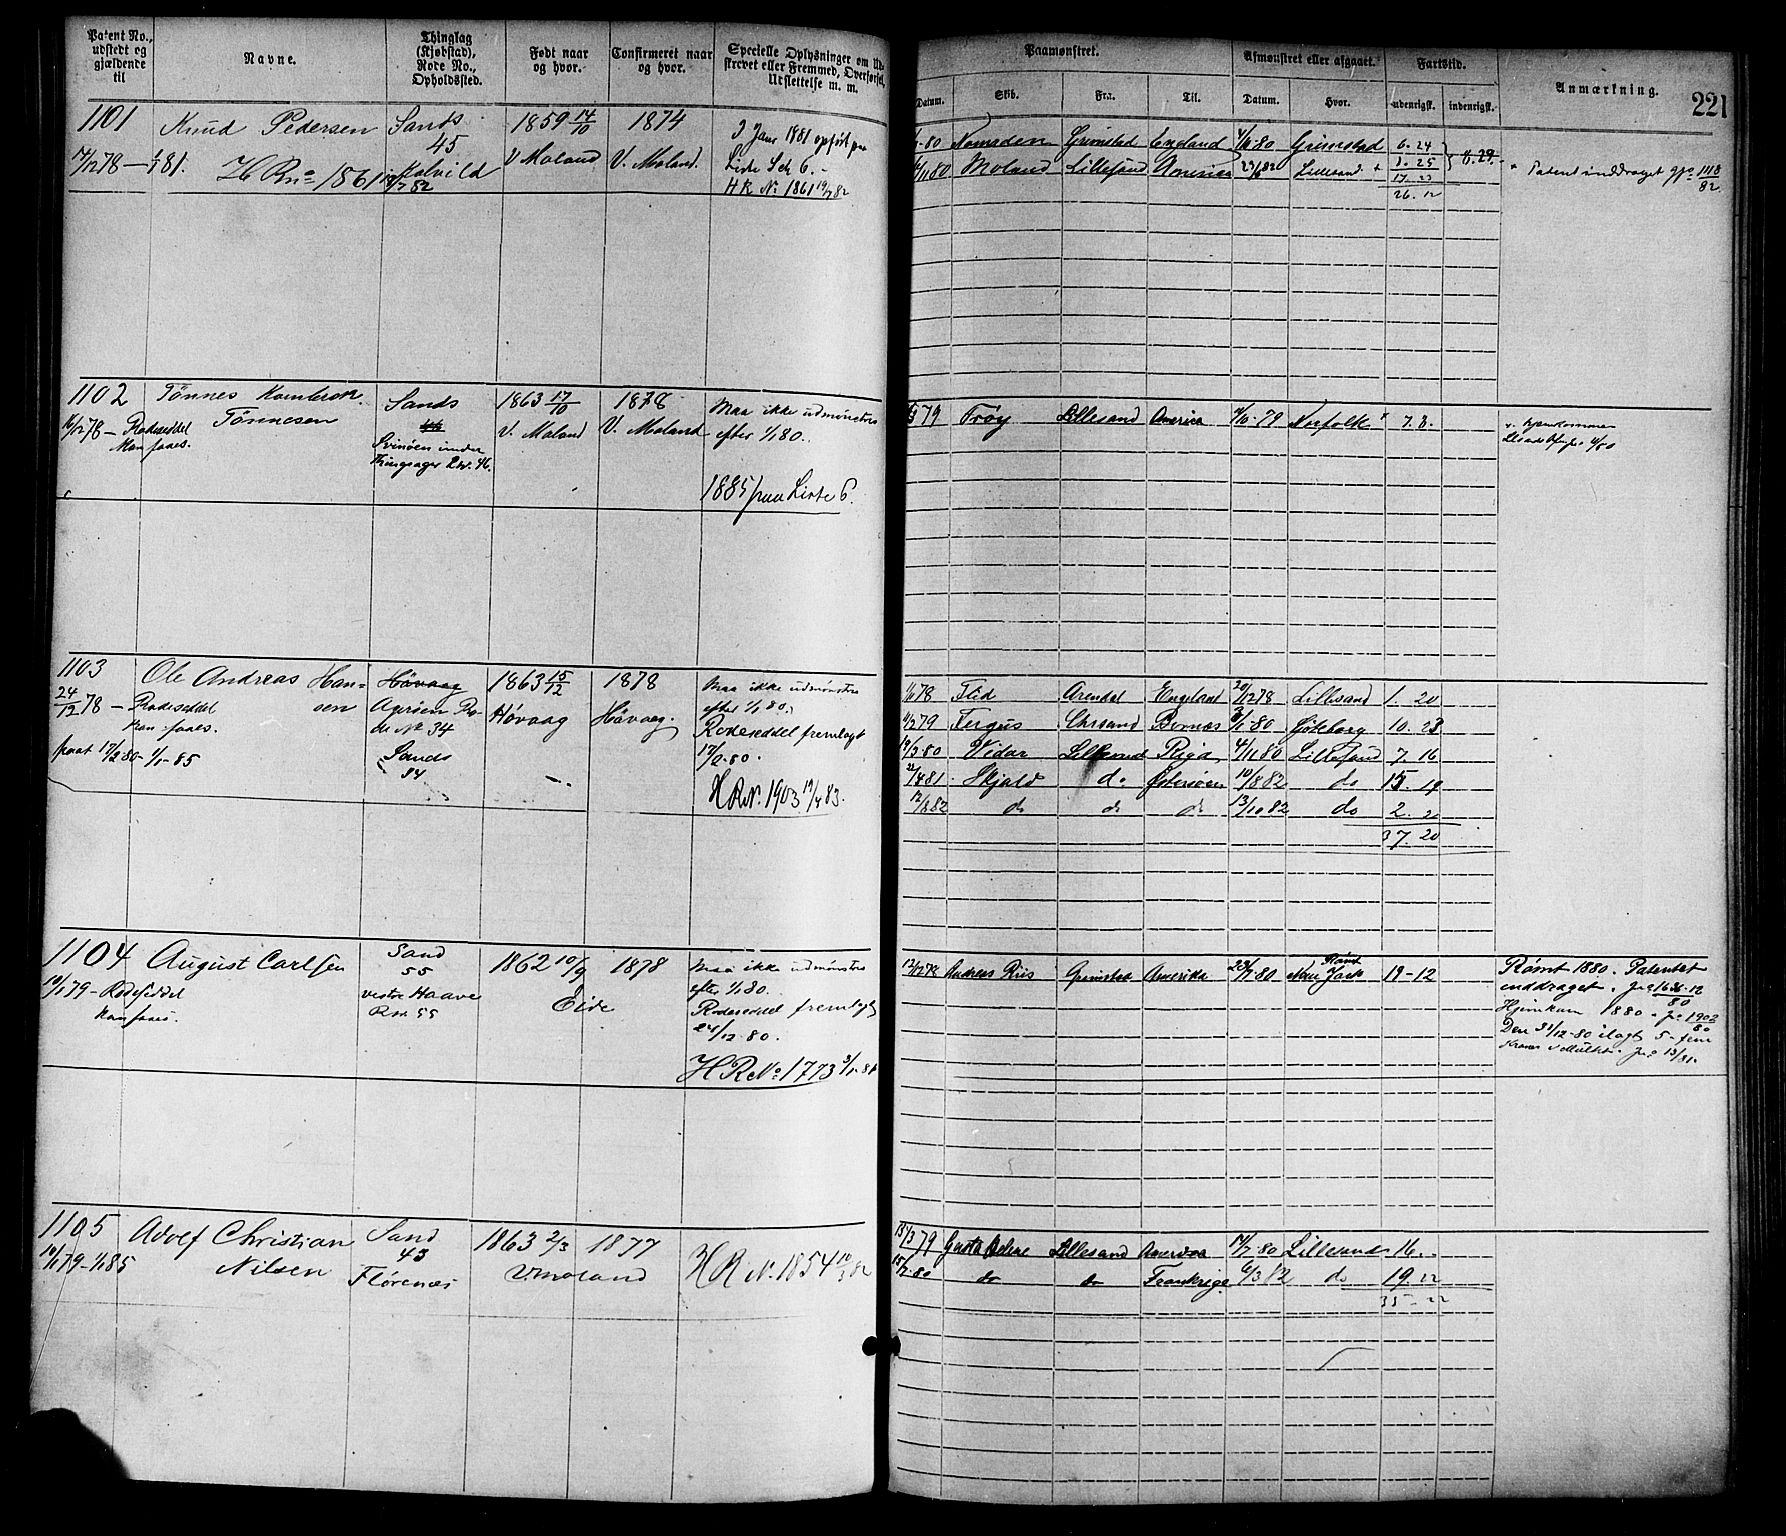 Patent No., udstedt og gjældende til
Navne.
Thinglag (Kjøbstad), Rode No., Opholdssted.
Født naar og hvor.
Confirmeret naar og hvor.
Specielle Oplysninger om Ud-
skrevet eller Fremmed, Overførsel,
Udslettelse m. m.
Paamønstret.
Afmønstret eller afgaaet.
Fartstid.
Anmærkning.
221
Datum. Skib. Fra. Til. Datum. Hvor. udenrigsk. indenrigsk.
1101 Knud Pedersen Sands 1859 14/10 1874
45
78 — 1/1 81. H R no 1861 Kalvild V Moland V. Moland.
3 Janr 1881 opført paa
Liste Sek 6. -
H R No 1861 19/7 82
80 Namsden Grimstad England 80 Grimstad 6. 24
80 Moland Lillesand America 82 Lillesand + 1. 25 8. 29.
17. 23
26. 12
Patent inddraget 1118/82
1102 Tønnes 1863 17/10 1878
Tønnesen Sands V. Moland V. Moland
16/12 78 — Rodeseddel
kan faaes.
Svinøen under
46.
Maa ikke udmønstres
efter 1/1 80.
1885 paa Liste 6.
79 Trøy Lillesand America 79 Norfolk x 7. 8.
1103 Ole Andreas Han-
sen Høvaag 1863 15/12 1878
24/12 78 — Rodeseddel
kan faaes.
Agerøen Ro-
de No 34 Høvaag Høvaag.
17/2 80 — 1/1 85 Sands
34
Maa ikke udmønstres
efter 1/1 80.
Rodeseddel fremlagt
17/2 80.
H R N. 1903 19/4 83.
78 Flid Arendal England 20/12 78 Lillesand 1. 20
79 Fergus Chrsand Bornæs 80 Gøteborg 10. 23
80 Vidar Lillesand Riga 4/11 80 Lillesand 7. 16
81 Skjold do Østersøen 10/8 82 do 15. 19
12/8 82 do do do 13/10 82 do 2. 20
37. 20
1104 August Carlsen Sand 1862 10/9 1878
55
10/1 79 — Rodeseddel
kan faaes.
vestre Haave
55 Eide
Maa ikke udmønstres
efter 1/1 80.
Rodeseddel fremlagt
24/12 80.
H R No 1773 3/1 81
Andreas Riis Grimstad Amerika 80 Rømt New York 19 - 12
Rømt 1880. Patentet
inddraget. 1636.12/80
Hjemkom 1880. 1902/80
Den 31/12 80 ilagt 5 - fem
Kroner i Mulkt. 13/81.
1105 Adolf Christian Sand 1863 2/3 1877
Nilsen 43
10/1 79 — 1/1 85 Florenæs V. Moland
H R N. 1854 10/3 82
79 Lillesand America 80 Lillesand 16.
80 do do Frankrige 6/3 82 do 19. 22
35 - 22